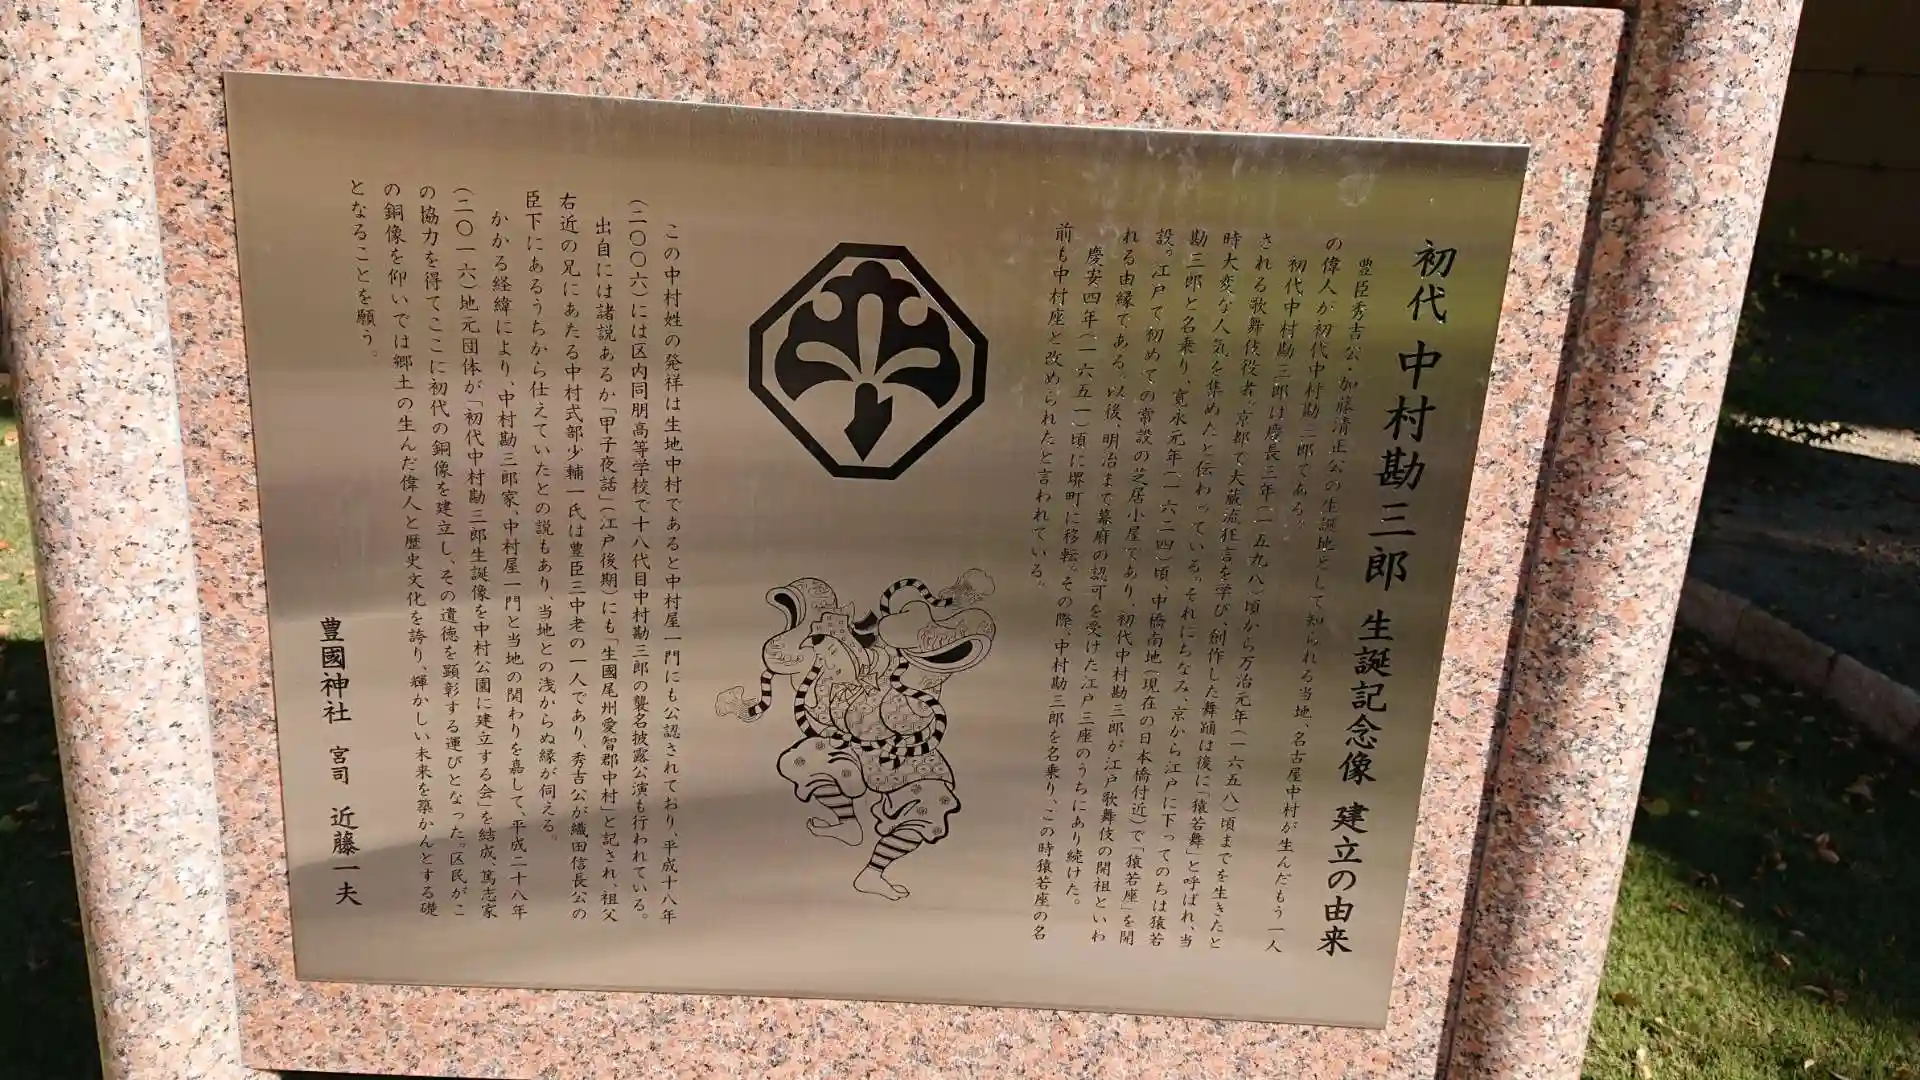 初代 中村勘三郎 生誕記念像 建立の由来
豊臣秀吉公・加藤清正公の生誕地として知られる当地、名古屋中村が生んだもう一人
の偉人が初代中村勘三郎である。
初代中村勘三郎は慶長三年(一五九八)頃から万治元年(一六五八)頃までを生きたと
される歌舞伎役者。京都で大蔵流狂言を学び、創作した舞踊は後に「猿若舞」と呼ばれ、当
時大変な人気を集めたと伝わっている。それにちなみ、京から江戸に下ってのちは猿若
勘三郎と名乗り、寛永元年(一六二四)頃、中橋南地(現在の日本橋付近)で「猿若座」を開
設。江戸で初めての常設の芝居小屋であり、初代中村勘三郎が江戸歌舞伎の開祖といわ
れる由縁である。以後、明治まで幕府の認可を受けた江戸三座のうちにあり続けた。
慶安四年(一六五一)頃に堺町に移転。その際、中村勘三郎を名乗り、この時猿若座の名
前も中村座と改められたと言われている。
この中村姓の発祥は生地中村であると中村屋一門にも公認されており、平成十八年
(二〇〇六)には区内同朋高等学校で十八代目中村勘三郎の襲名披露公演も行われている。
出自には諸説あるが「甲子夜話」(江戸後期)にも「生國尾州愛智郡中村」と記され、祖父
右近の兄にあたる中村式部少輔一氏は豊臣三中老の一人であり、秀吉公が織田信長公の
臣下にあるうちから仕えていたとの説もあり、当地との浅からぬ縁が伺える。
かかる経緯により、中村勘三郎家、中村屋一門と当地の関わりを嘉して、平成二十八年
(二〇一六)地元団体が「初代中村勘三郎生誕像を中村公園に建立する会」を結成、篤志家
の協力を得てここに初代の銅像を建立し、その遺徳を顕彰する運びとなった。区民がこ
の銅像を仰いでは郷土の生んだ偉人と歴史文化を誇り、輝かしい未来を築かんとする礎
となることを願う。
豊國神社 宮司 近藤一夫